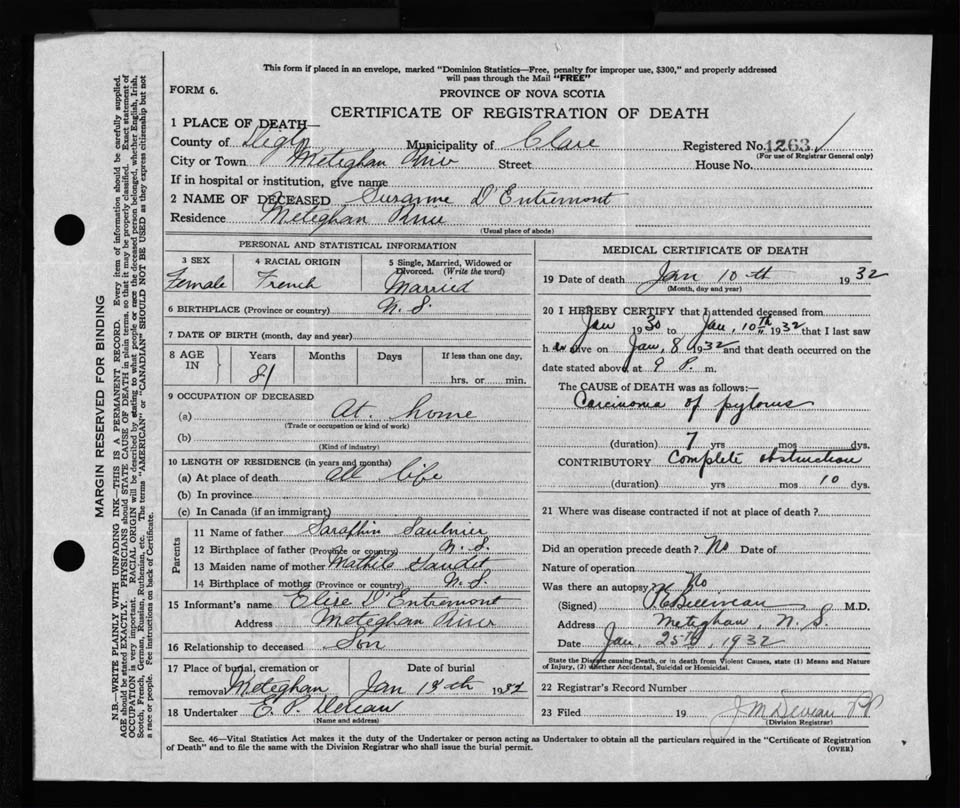 This form if placed in an envelope, marked "Dominion Statistics—Free, penalty for improper use, $300," and properly addressed
will pass through the Mail "FREE"
FORM 6.
PROVINCE OF NOVA SCOTIA
CERTIFICATE OF REGISTRATION OF DEATH
1 PLACE OF DEATH—
County of Digby Municipality of Clare Registered No. 1263
(For use of Registrar General only)
City or Town Meteghan River Street House No.
If in hospital or institution, give name
2 NAME OF DECEASED Suzanne D'Entremont
Residence Meteghan River
(Usual place of abode)
PERSONAL AND STATISTICAL INFORMATION
3 SEX 4 RACIAL ORIGIN 5 Single, Married, Widowed or Divorced. (Write the word)
Female French Married
6 BIRTHPLACE (Province or country) N. S.
7 DATE OF BIRTH (month, day and year)
8 AGE IN Years Months Days If less than one day,
81 hrs. or min.
9 OCCUPATION OF DECEASED
(a) At home
(Trade or occupation or kind of work)
(b)
(Kind of industry)
10 LENGTH OF RESIDENCE (in years and months)
(a) At place of death all life
(b) In province
(c) In Canada (if an immigrant)
Parents
11 Name of father Saraphin Saulnier
12 Birthplace of father (Province or country) N. S.
13 Maiden name of mother Mathile Gaudet
14 Birthplace of mother (Province or country) N. S
15 Informant's name Elise D'Entremont
Address Meteghan River
16 Relationship to deceased Son
17 Place of burial, cremation or Date of burial
removal Meteghan Jan 1th 1932
18 Undertaker E. P.
(Name and address)
MEDICAL CERTIFICATE OF DEATH
19 Date of death Jan 10th 1932
(Month, day and year)
20 I HEREBY CERTIFY that I attended deceased from
Jan 1930 to Jan, 10TH 1932 that I last saw
her alive on Jan, 8 1932 and that death occurred on the
date stated above at 9 P. m.
The CAUSE OF DEATH was as follows:—
Carcinoma of pylorus
(duration) 7 yrs mos dys.
CONTRIBUTORY Complete obstruction
(duration) yrs mos 10 dys.
21 Where was disease contracted if not at place of death?
Did an operation precede death? No Date of
Nature of operation
Was there an autopsy? No
(Signed) M.D.
Address Meteghan, N. S.
Date Jan, 25th, 1932
State the Disease causing Death, or in death from Violent Causes, state (1) Means and Nature
of Injury, (2) whether Accidental, Suicidal or Homicidal.
22 Registrar's Record Number
23 Filed 19 J M Deveau
(Division Registrar)
Sec. 46—Vital Statistics Act makes it the duty of the Undertaker or person acting as Undertaker to obtain all the particulars required in the "Certificate of Registration
of Death" and to file the same with the Division Registrar who shall issue the burial permit. (OVER)
MARGIN RESERVED FOR BINDING
N.B.—WRITE PLAINLY WITH UNFADING INK—THIS IS A PERMANENT RECORD. Every item of information should be carefully supplied.
AGE should be stated EXACTLY. PHYSICIANS should STATE CAUSE OF DEATH in plain terms, so that it may be properly classified. Exact statement of
OCCUPATION is very important. RACIAL ORIGIN will be described by stating to what people or race the deceased person belonged, whether English, Irish,
Scotch, French, German, Russian, Ruthenian, etc. The terms "AMERICAN" or "CANADIAN" SHOULD NOT BE USED as they express citizenship but not
a race or people. Fee instructions on back of Certificate.